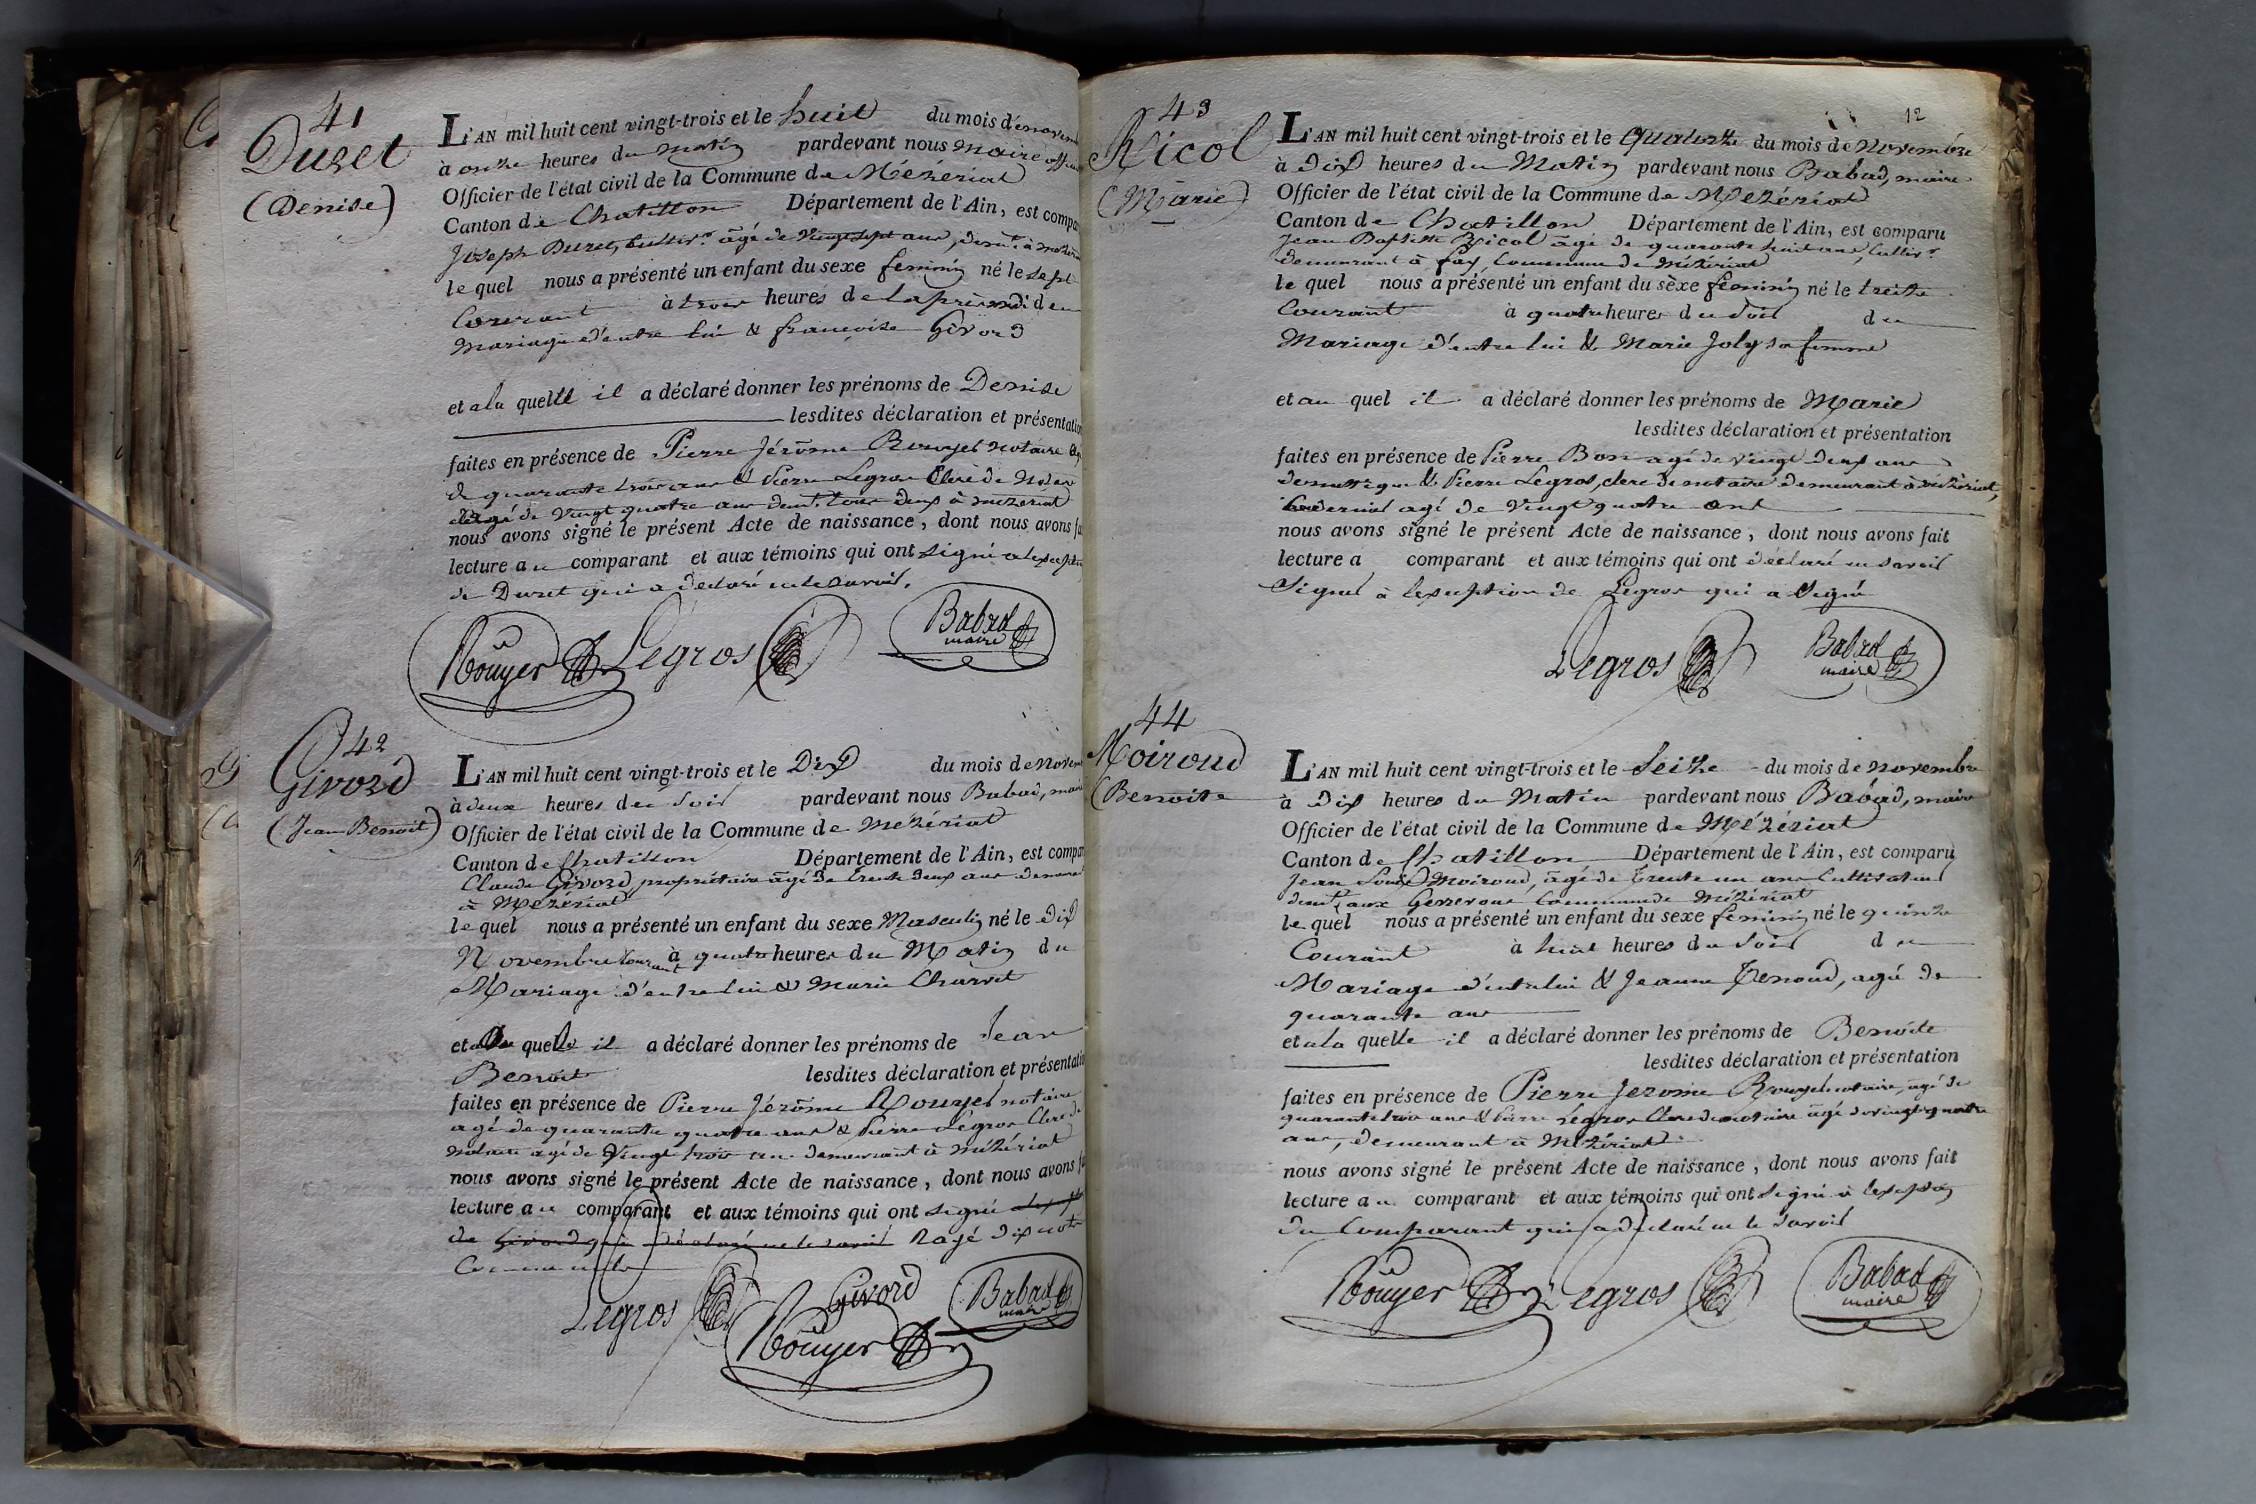 41
Duret
(Denise)
L'AN mil huit cent vingt-trois et le huit du mois de novem
à onze heures du matin pardevant nous maire
Officier de l'état civil de la Commune de Mézériat
Canton de Chatillon Département de l'Ain, est compa
Joseph Duret, cultivr. âgé de vingt sept ans, demt. à
le quel nous a présenté un enfant du sexe feminin né le sept
Courant à trois heures de la près midi du
Mariage d'entre lui & françoise Givord
et a la quelle il a déclaré donner les prénoms de Denise
lesdites déclaration et présentation
faites en présence de Pierre Jérôme Rouyer notaire
de quarante trois ans & Pierre Legros Clerc de
âgé de vingt quatre ans demt. tous deux à mézériat
nous avons signé le présent Acte de naissance, dont nous avons fa
lecture au comparant et aux témoins qui ont signé a
de Duret qui a déclaré ne le savoir.
Rouyer Legros Babad
maire
42
Givord
(Jean Benoit)
L'AN mil huit cent vingt-trois et le Dix du mois de novem
à deux heures du soir pardevant nous Babad, mai
Officier de l'état civil de la Commune de Mézériat
Canton de Chatillon Département de l'Ain, est compar
Claude Givord, propriétaire âgé de trente deux ans demeur
à Mézériat
le quel nous a présenté un enfant du sexe Masculin né le Dix
Novembre courant à quatre heures du Matin du
Mariage d'entre lui & Marie Charvet
et quel il a déclaré donner les prénoms de Jean
Benoit lesdites déclaration et présentatio
faites en présence de Pierre Jérôme Rouyer notaire
agé de quarante quatre ans & Pierre Legros Clerc de
notaire agé de vingt trois ans demeurant à mézériat
nous avons signé le présent Acte de naissance, dont nous avons fa
lecture au comparant et aux témoins qui ont signé
de Givord qui a déclaré ne le savoir Rayé dix mots
Legros Givord Babad
maire
Rouyer
43 12
Nicol
(Marie)
L'AN mil huit cent vingt-trois et le quatorze du mois de novembre
à Dix heures du Matin pardevant nous Babad, maire
Officier de l'état civil de la Commune de Mézériat
Canton de Chatillon Département de l'Ain, est comparu
Jean Baptiste Nicol âgé de quarante huit ans, Cultivr.
demeurant à fay, Commune de Mézériat
le quel nous a présenté un enfant du sèxe féminin né le treize
Courant à quatre heures du Soir du
Mariage d'entre lui & Marie Joly sa femme
et au quel il a déclaré donner les prénoms de Marie
lesdites déclaration et présentation
faites en présence de Pierre Bon agé de vingt deux ans
domestique & Pierre Legros, clerc de notaire demeurant à mézériat,
ce dernier agé de vingt quatre ans
nous avons signé le présent Acte de naissance, dont nous avons fait
lecture a comparant et aux témoins qui ont déclaré ne savoir
signer à l'exception de Legros qui a signé
Legros Babad
maire
44
Moiroud
(Benoite
L'AN mil huit cent vingt-trois et le Seize du mois de novembre
à Dix heures du Matin pardevant nous Babad, maire
Officier de l'état civil de la Commune de Mézériat
Canton de Chatillon Département de l'Ain, est comparu
Jean Louis Moiroud, âgé de trente un ans Cultivateur
demt. aux Commune de Mézériat
le quel nous a présenté un enfant du sexe féminin né le quinze
Courant à huit heures du Soir du
Mariage d'entre lui & Jeanne Tenoud, agée de
quarante ans
et a la quelle il a déclaré donner les prénoms de Benoite
lesdites déclaration et présentation
faites en présence de Pierre Jerome Rouyer notaire, agé de
quarante trois ans & Pierre Legros Clerc de notaire âgé de vingt quatre
ans, demeurant à Mézériat
nous avons signé le présent Acte de naissance, dont nous avons fait
lecture au comparant et aux témoins qui ont signé à
du Comparant qui a déclaré ne le savoir
Rouyer Legros Babad
maire